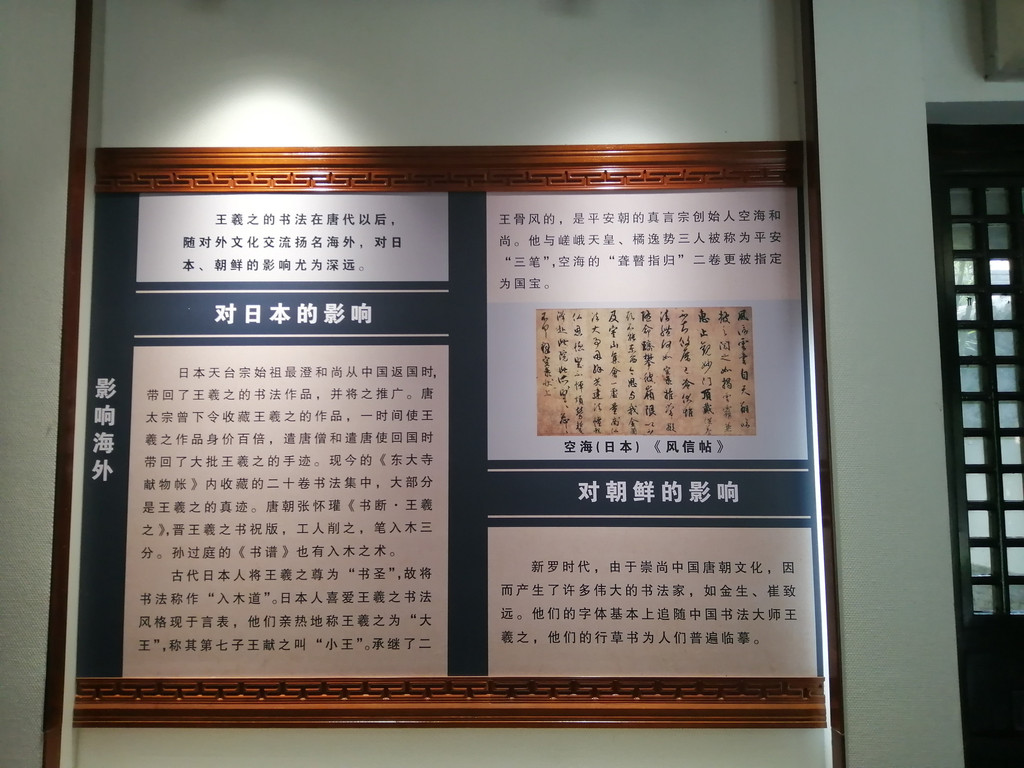 影响海外
王羲之的书法在唐代以后，
随对外文化交流扬名海外，对日
本、朝鲜的影响尤为深远。
对日本的影响
日本天台宗始祖最澄和尚从中国返国时，
带回了王羲之的书法作品，并将之推广。唐
太宗曾下令收藏王羲之的作品，一时间使王
羲之作品身价百倍，遣唐僧和遣唐使回国时
带回了大批王羲之的手迹。现今的《东大寺
献物帐》内收藏的二十卷书法集中，大部分
是王羲之的真迹。唐朝张怀瓘《书断·王羲
之》，晋王羲之书祝版，工人削之，笔入木三
分。孙过庭的《书谱》也有入木之术。
古代日本人将王羲之尊为“书圣”，故将
书法称作“入木道”。日本人喜爱王羲之书法
风格现于言表，他们亲热地称王羲之为“大
王”，称其第七子王献之叫“小王”。承继了二
王骨风的，是平安朝的真言宗创始人空海和
尚。他与嵯峨天皇、橘逸势三人被称为平安
“三笔”，空海的“聋瞽指归”二卷更被指定
为国宝。
空海(日本)《风信帖》
对朝鲜的影响
新罗时代，由于崇尚中国唐朝文化，因
而产生了许多伟大的书法家，如金生、崔致
远。他们的字体基本上追随中国书法大师王
羲之，他们的行草书为人们普遍临摹。